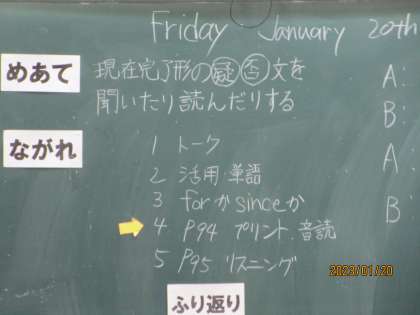 Friday January 20th
めあて
現在完了形の疑否文を
聞いたり読んだりする
A:
B:
A:
B
ながれ
1 トーク
2 活用.単語
3 forかsinceか
4 P94 プリント.音読
5 P95 リスニング
2023/01/20
ふり返り